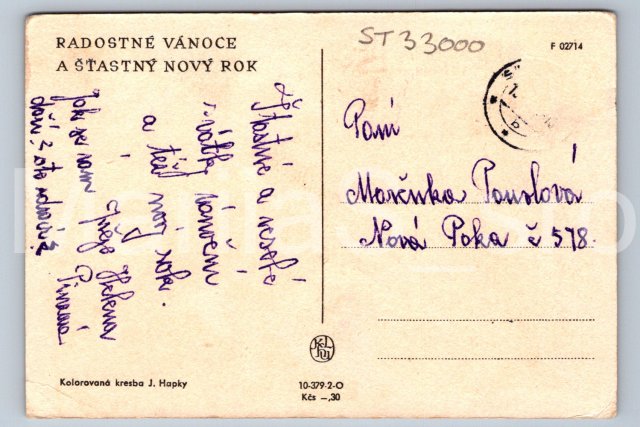 RADOSTNÉ VÁNOCE
A ŠŤASTNÝ NOVÝ ROK
ST 33000
F 02714
Šťastné a veselé
svátky vánoční
a též nový rok.
přeje Helena
Jak se vám
daří?
Paní
Marčuka Pouslová
Nová Paka č 578.
Kolorovaná kresba J. Hapky
10-379-2-O
Kčs –,30